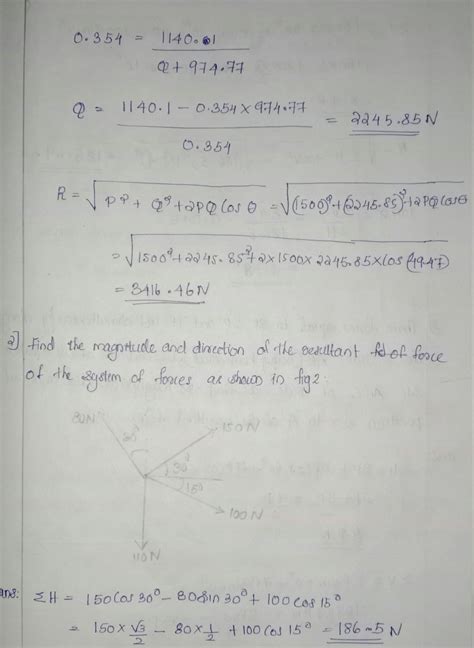 0.354 = 1140.01 / Q + 974.77
Q = 1140.1 - 0.354 × 974.77 / 0.354 = 2245.85 N
R = √P² + Q² + 2PQ Cos θ = √(1500)² + (2245.85)² + 2PQ Cosθ
= √1500² + 2245.85² + 2 × 1500 × 2245.85 × Cos (49.47)
= 3416.46 N
2] Find the magnitude and direction of the resultant of force
of the system of forces as shown in fig 2:
80N
150 N
30°
30°
15°
100 N
110N
ans: ΣH = 150 Cos 30° - 80 sin 30° + 100 Cos 15°
= 150 × √3/2 - 80 × 1/2 + 100 Cos 15° = 186.5 N